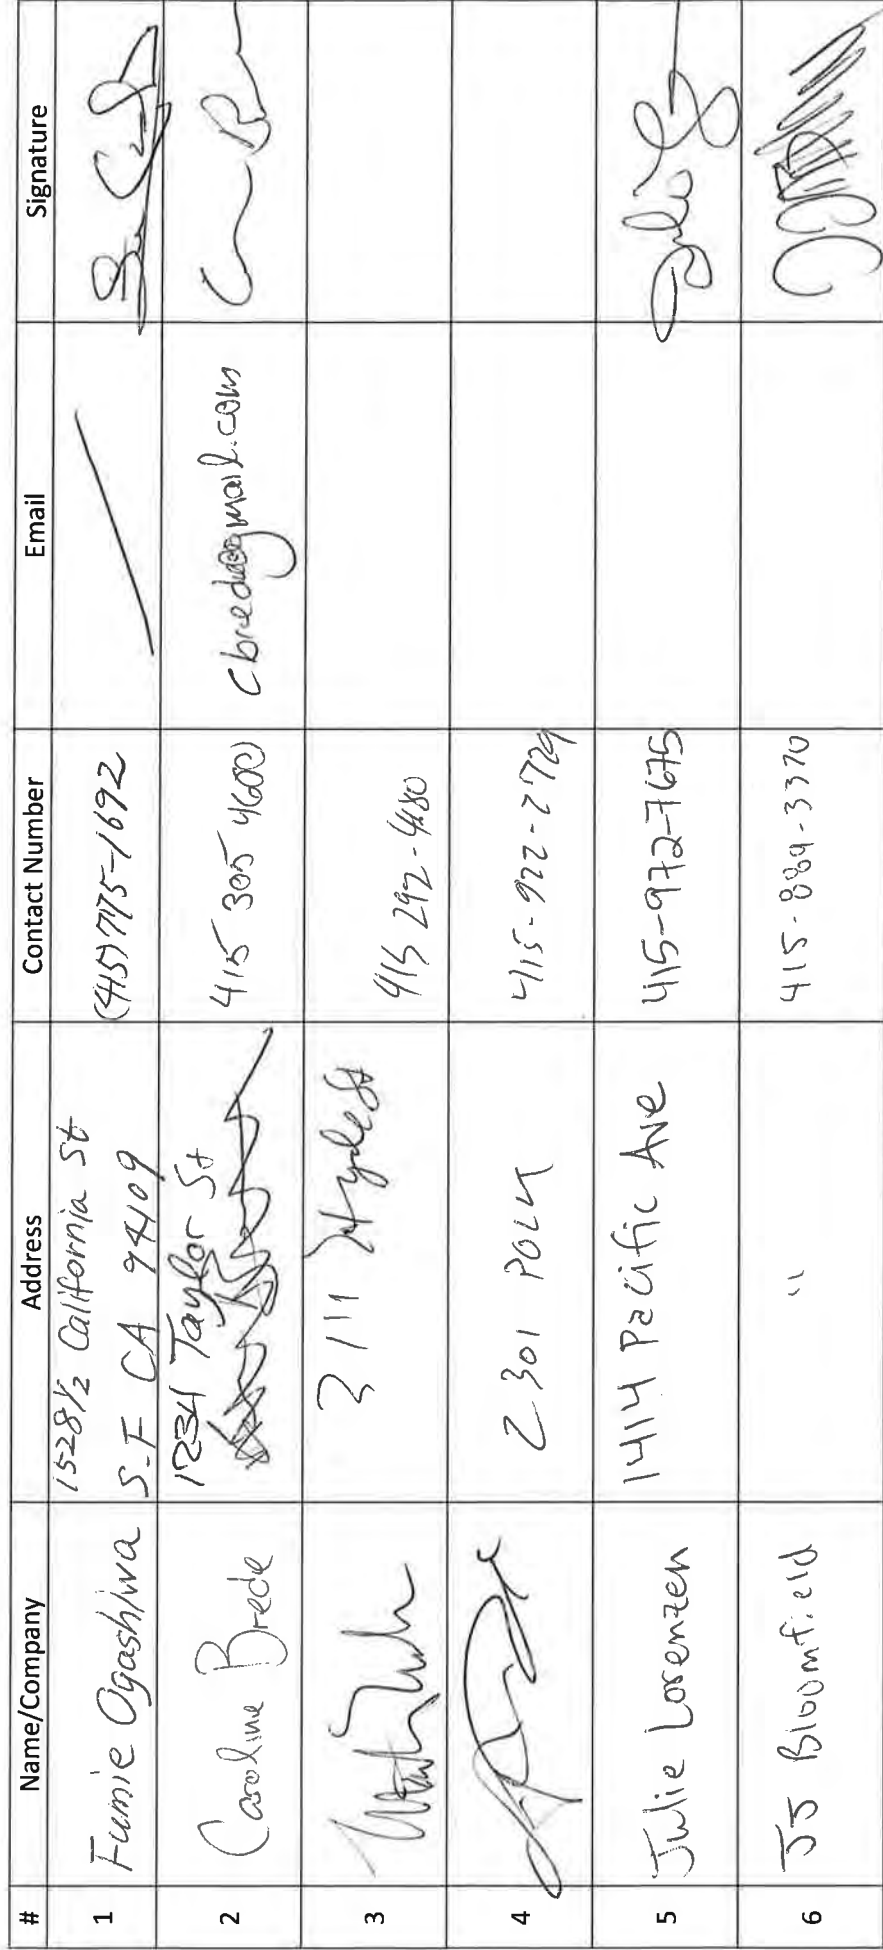 # Name/Company Address Contact Number Email Signature
1 Fumie Ogashiwa 1528½ California St (415) 775-1692
S.F CA 94109
2 Caroline Brede 1234 Taylor St 415 305 4600
3 Hyde St 415 292-4480
4 2301 POLK 415-922-2729
5 Julie Lorenzen 1414 Pacific Ave 415-972-7675
6 JJ Bloomfield " 415-889-3370